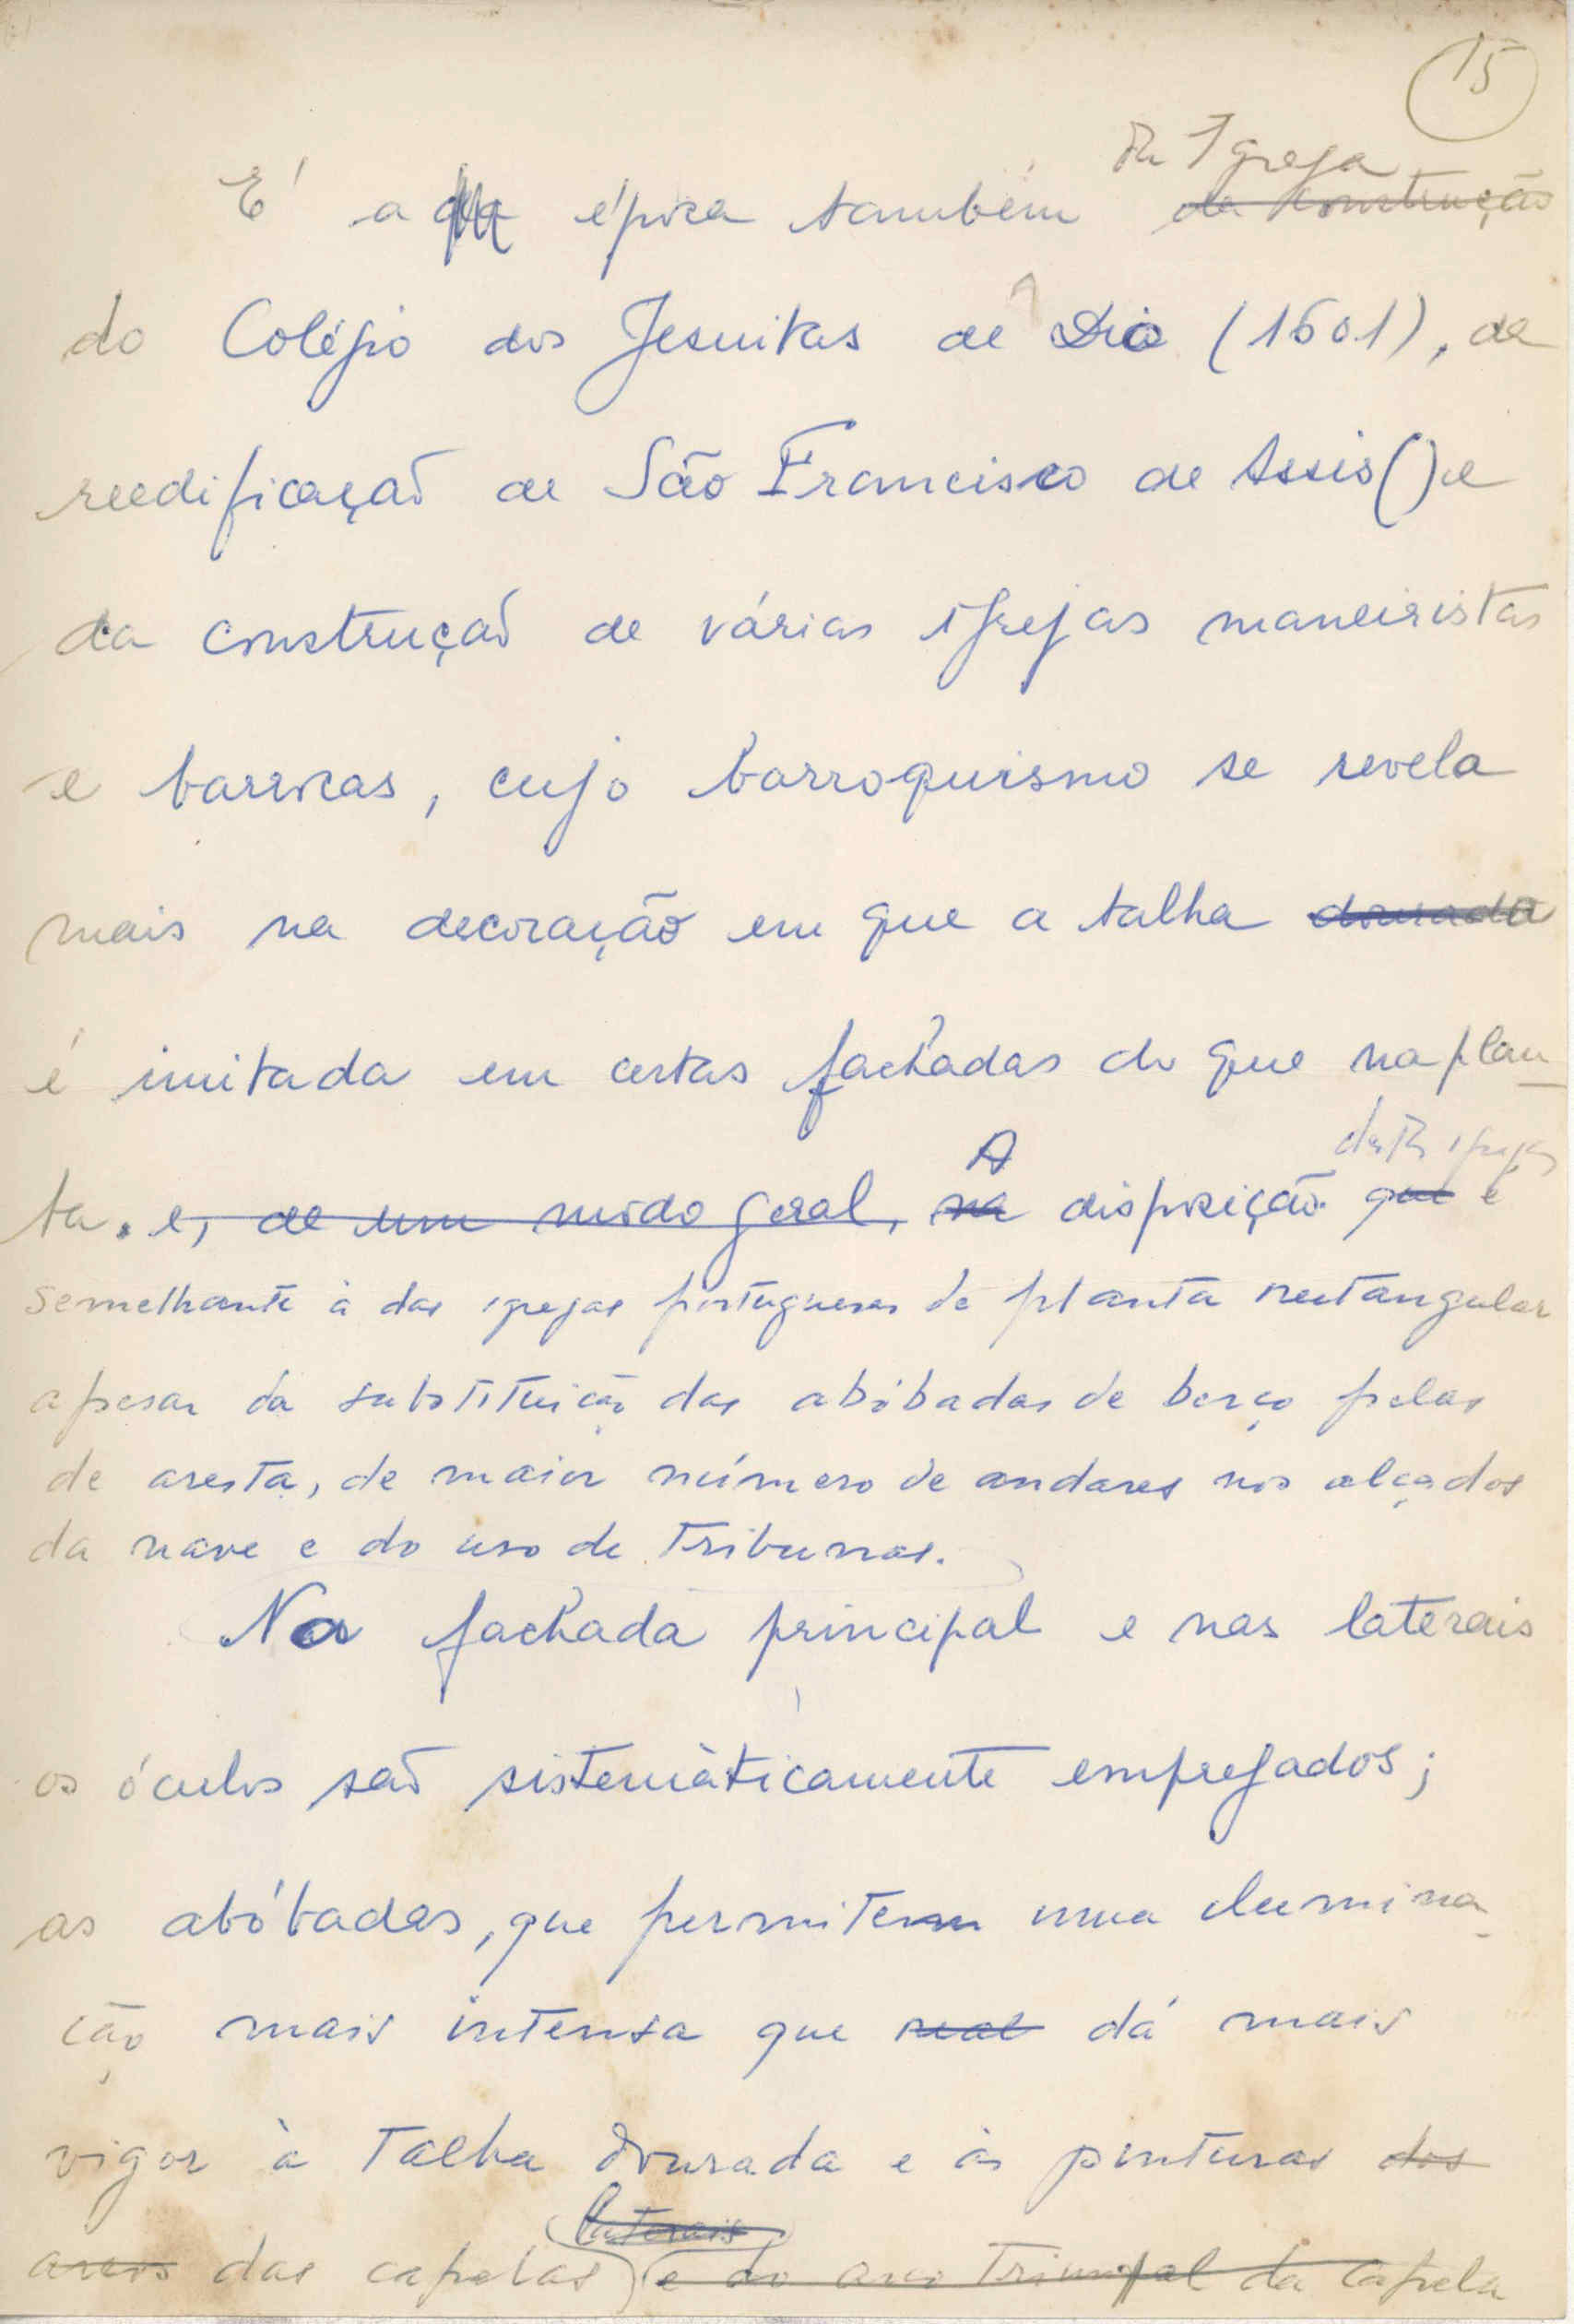 15
da Igreja
É a época também da construção
do Colégio dos Jesuitas de Dio (1601), de
reedificação de São Francisco de Assis () e
da construção de várias igrejas maneiristas
e barrocas, cujo barroquismo se revela
mais na decoração em que a talha dourada
é imitada em certas fachadas do que na plan
A destas igrejas
ta. e, de um modo geral, na disposição que é
semelhante à das igrejas portuguesas de planta rectangular
apesar da substituição das abóbadas de berço pelas
de aresta, de maior número de andares nos alçados
da nave e do uso de tribunas.
Na fachada principal e nas laterais
os óculos são sistemàticamente empregados;
as abóbadas, que permitem uma ilumina-
ção mais intensa que real dá mais
vigor à talha dourada e às pinturas dos
laterais
arcos das capelas) (e do arco triunfal da capela